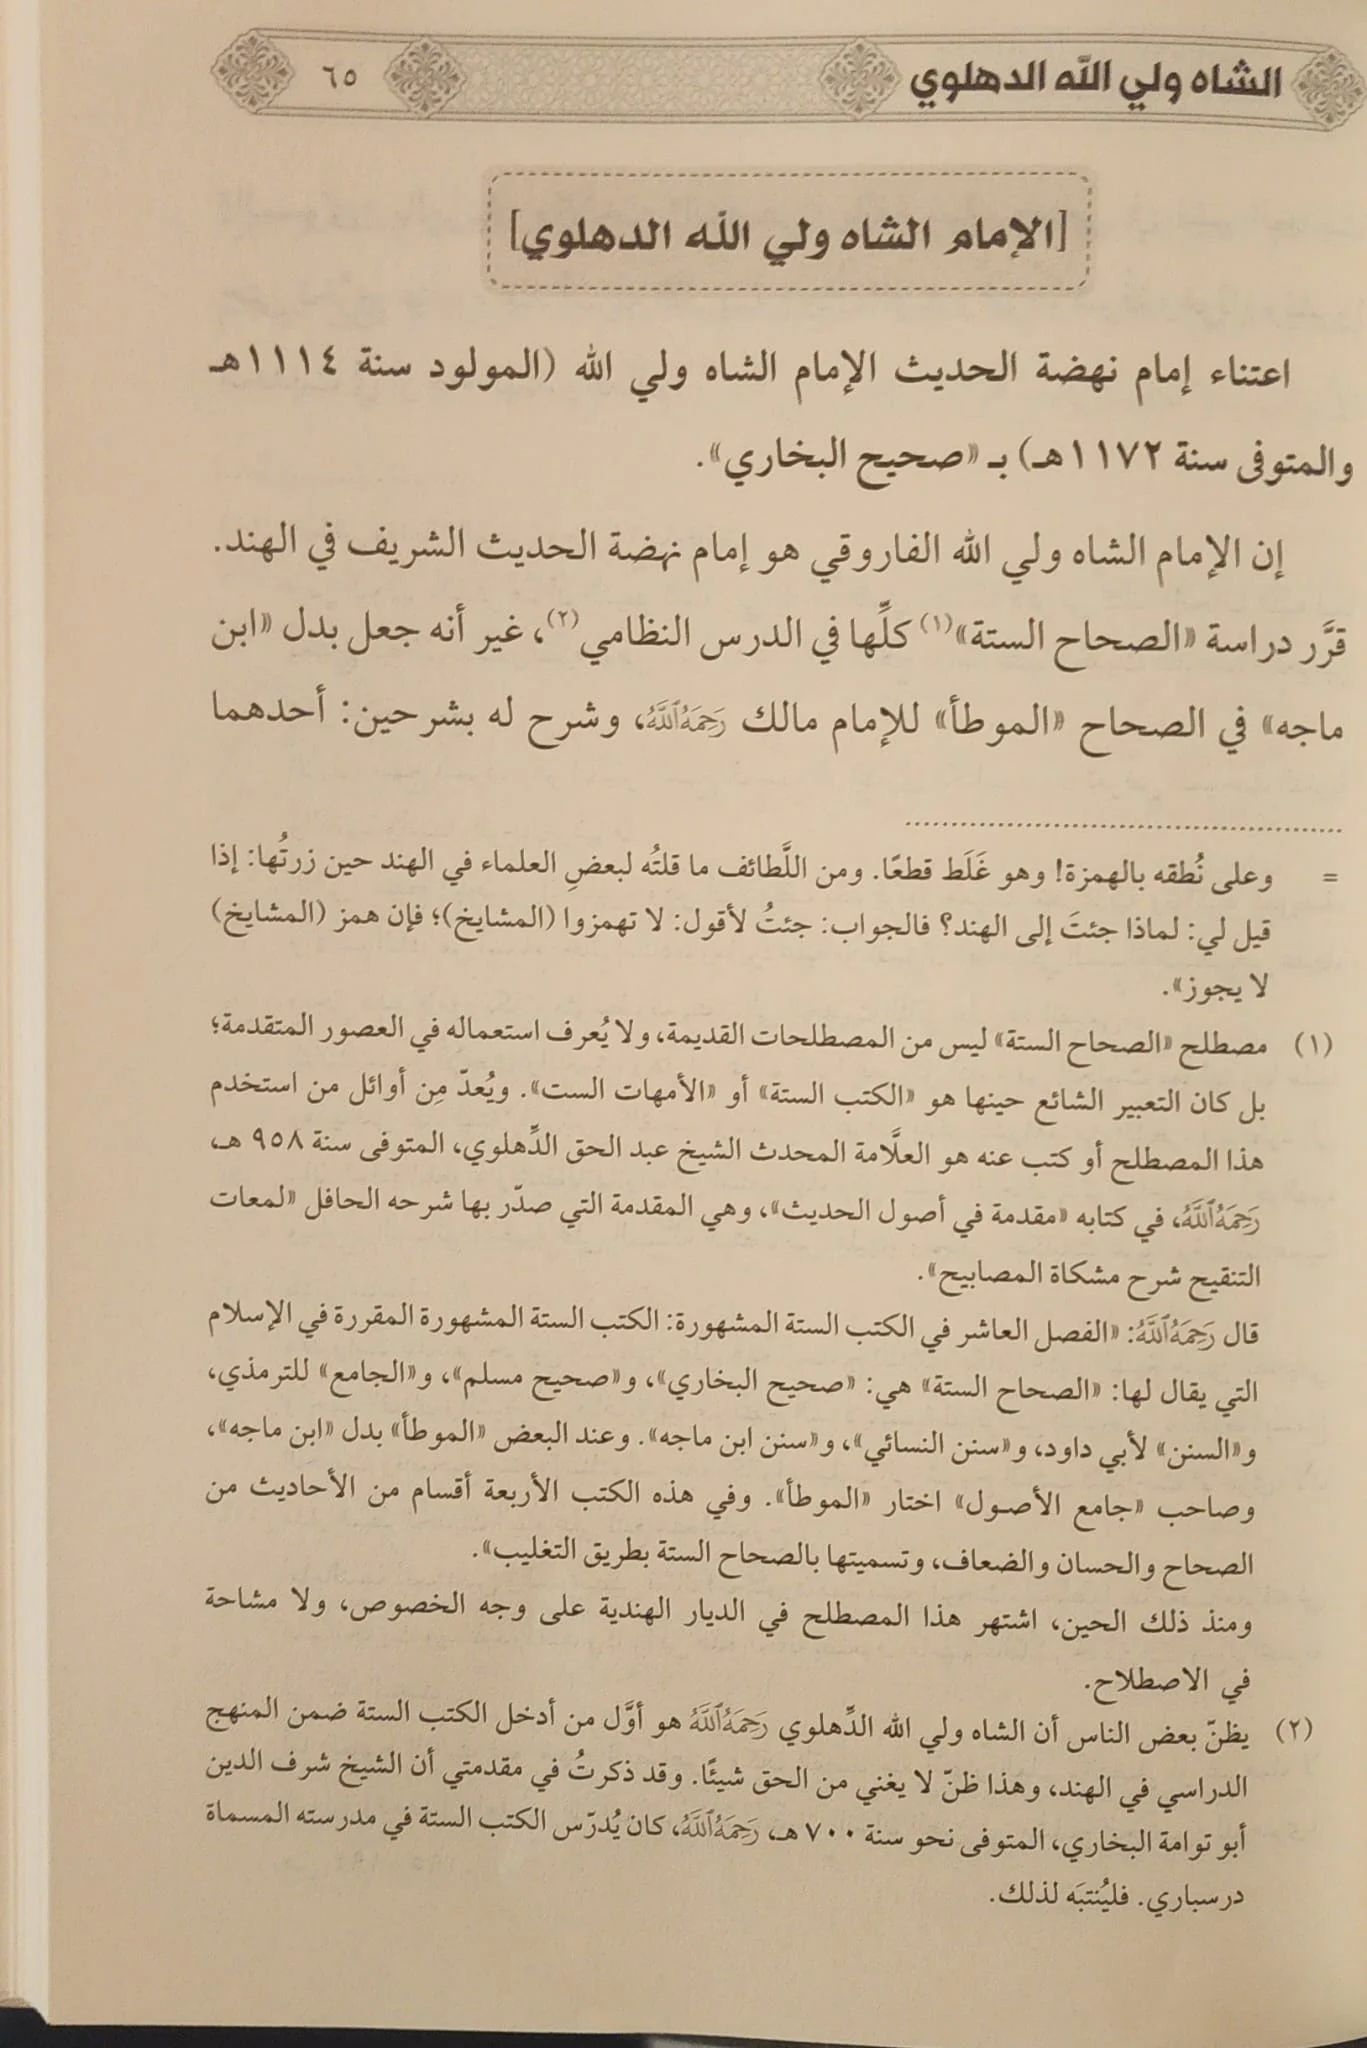 الشاه ولي الله الدهلوي ٦٥
[الإمام الشاه ولي الله الدهلوي]
اعتناء إمام نهضة الحديث الإمام الشاه ولي الله (المولود سنة ١١١٤هـ
والمتوفى سنة ١١٧٢هـ) بـ «صحيح البخاري».
إن الإمام الشاه ولي الله الفاروقي هو إمام نهضة الحديث الشريف في الهند.
قرَّر دراسة «الصحاح الستة»(١) كلِّها في الدرس النظامي(٢)، غير أنه جعل بدل «ابن
ماجه» في الصحاح «الموطأ» للإمام مالك رَحِمَهُ ٱللَّهُ، وشرح له بشرحين: أحدهما
= وعلى نُطقه بالهمزة! وهو غَلَط قطعًا. ومن اللَّطائف ما قلتُه لبعضِ العلماء في الهند حين زرتُها: إذا
قيل لي: لماذا جئتَ إلى الهند؟ فالجواب: جئتُ لأقول: لا تهمزوا (المشايخ)؛ فإن همز (المشايخ)
لا يجوز».
(١) مصطلح «الصحاح الستة» ليس من المصطلحات القديمة، ولا يُعرف استعماله في العصور المتقدمة؛
بل كان التعبير الشائع حينها هو «الكتب الستة» أو «الأمهات الست». ويُعدّ مِن أوائل من استخدم
هذا المصطلح أو كتب عنه هو العلَّامة المحدث الشيخ عبد الحق الدِّهلوي، المتوفى سنة ٩٥٨ هـ،
رَحِمَهُ ٱللَّهُ، في كتابه «مقدمة في أصول الحديث»، وهي المقدمة التي صدّر بها شرحه الحافل «لمعات
التنقيح شرح مشكاة المصابيح».
قال رَحِمَهُ ٱللَّهُ: «الفصل العاشر في الكتب الستة المشهورة: الكتب الستة المشهورة المقررة في الإسلام
التي يقال لها: «الصحاح الستة» هي: «صحيح البخاري»، و«صحيح مسلم»، و«الجامع» للترمذي،
و«السنن» لأبي داود، و«سنن النسائي»، و«سنن ابن ماجه». وعند البعض «الموطأ» بدل «ابن ماجه»،
وصاحب «جامع الأصول» اختار «الموطأ». وفي هذه الكتب الأربعة أقسام من الأحاديث من
الصحاح والحسان والضعاف، وتسميتها بالصحاح الستة بطريق التغليب».
ومنذ ذلك الحين، اشتهر هذا المصطلح في الديار الهندية على وجه الخصوص، ولا مشاحة
في الاصطلاح.
(٢) يظنّ بعض الناس أن الشاه ولي الله الدِّهلوي رَحِمَهُ ٱللَّهُ هو أوَّل من أدخل الكتب الستة ضمن المنهج
الدراسي في الهند، وهذا ظنّ لا يغني من الحق شيئًا. وقد ذكرتُ في مقدمتي أن الشيخ شرف الدين
أبو توامة البخاري، المتوفى نحو سنة ٧٠٠ هـ، رَحِمَهُ ٱللَّهُ، كان يُدرّس الكتب الستة في مدرسته المسماة
درسباري. فليُنتبَه لذلك.